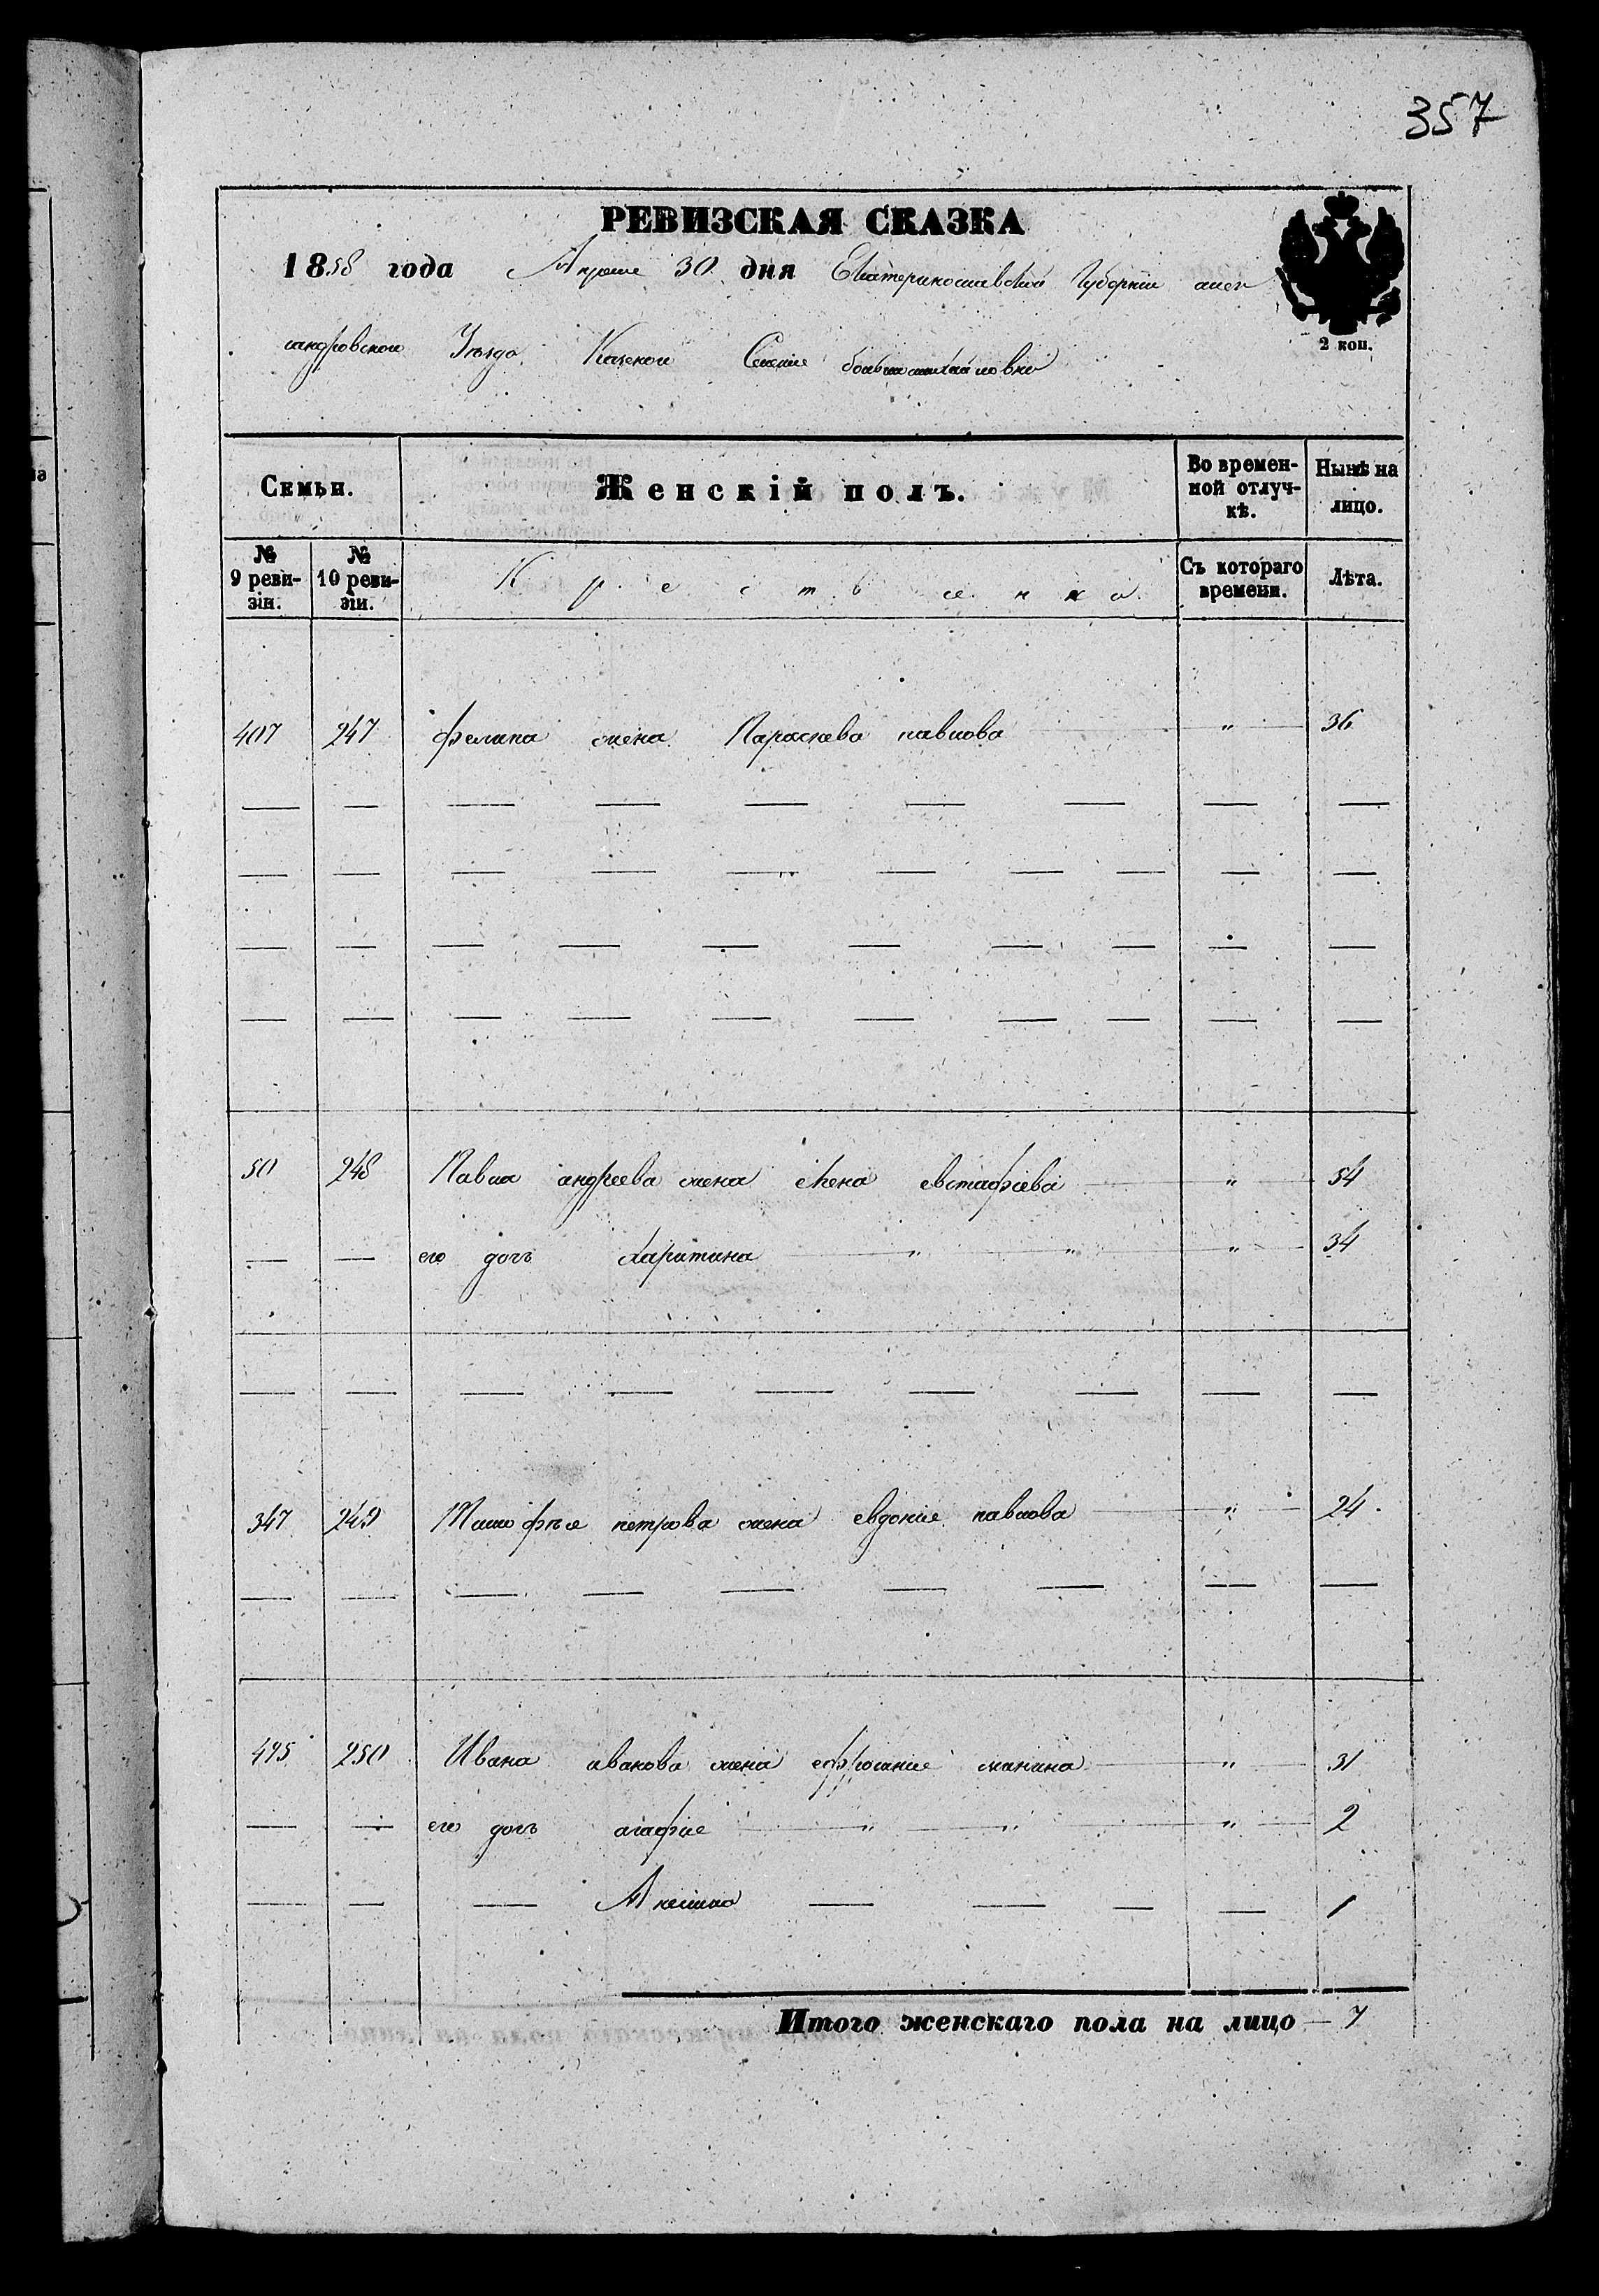 357
РЕВИЗСКАЯ СКАЗКА
1858 года Апреля 30 дня Екатеринославской Губернии алек
сандровскои Уезда Казенои Селение большемихайловки
2 коп.
Семьи. Женскій полъ. Во времен-ной отлуч-кѣ. Нынѣ на лицо.
№ 9 реви-зіи. № 10 реви-зіи. Крестьянка Съ котораго времени. Лѣта.
407 247 жена Параскева павлова " 36
50 248 Павла андреева жена елена евстафіева " 54
его дочь харитина " " " 34
347 249 Тимофея петрова жена евдокие павлова " 24
495 250 Ивана иванова жена ефросиние " 31
его дочь агафие " " " 2
1
Итого женскаго пола на лицо — 7